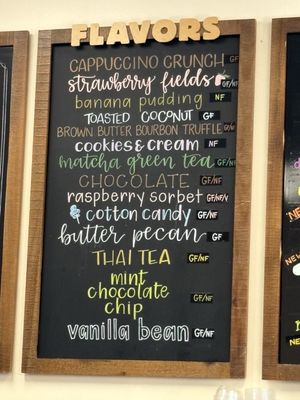 FLAVORS
CAPPUCCINO CRUNCH GF
strawberry fields GF/NF
banana pudding NF
TOASTED COCONUT GF
BROWN BUTTER BOURBON TRUFFLE GF/NF
cookies & cream NF
matcha green tea GF/NF
CHOCOLATE GF/NF
raspberry sorbet GF/NF/V
cotton candy GF/NF
butter pecan GF
THAI TEA GF/NF
mint
chocolate GF/NF
chip
vanilla bean GF/NF
NEW